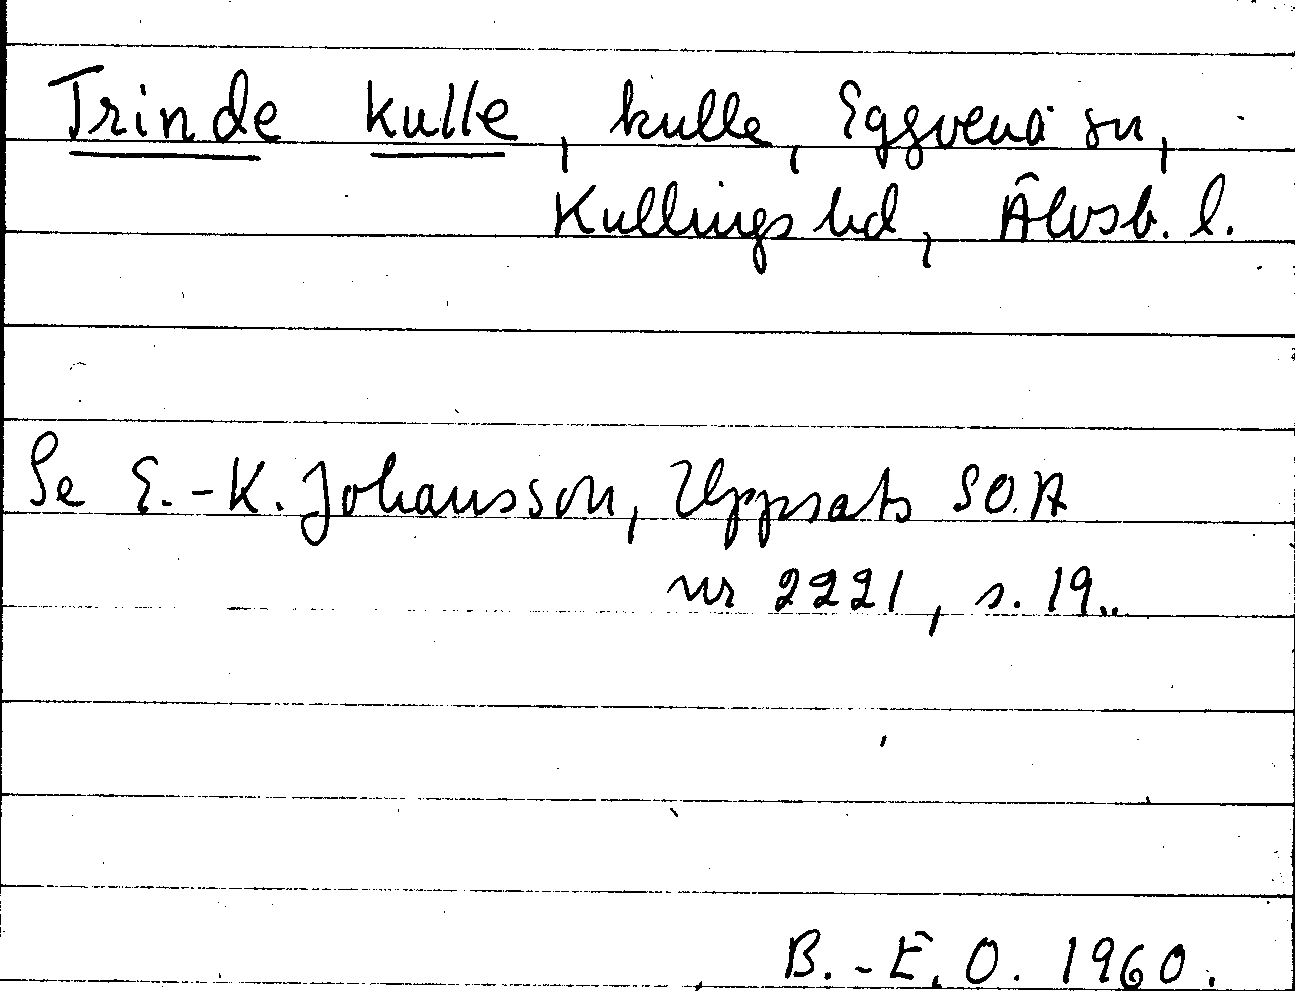 Trinde kulle, kulle, Eggvena sn,
Kullings hd, Älvsb. l.
Se E.-K. Johansson, Uppsats SOA
nr 2221, s. 19.
B.-E. O. 1960.